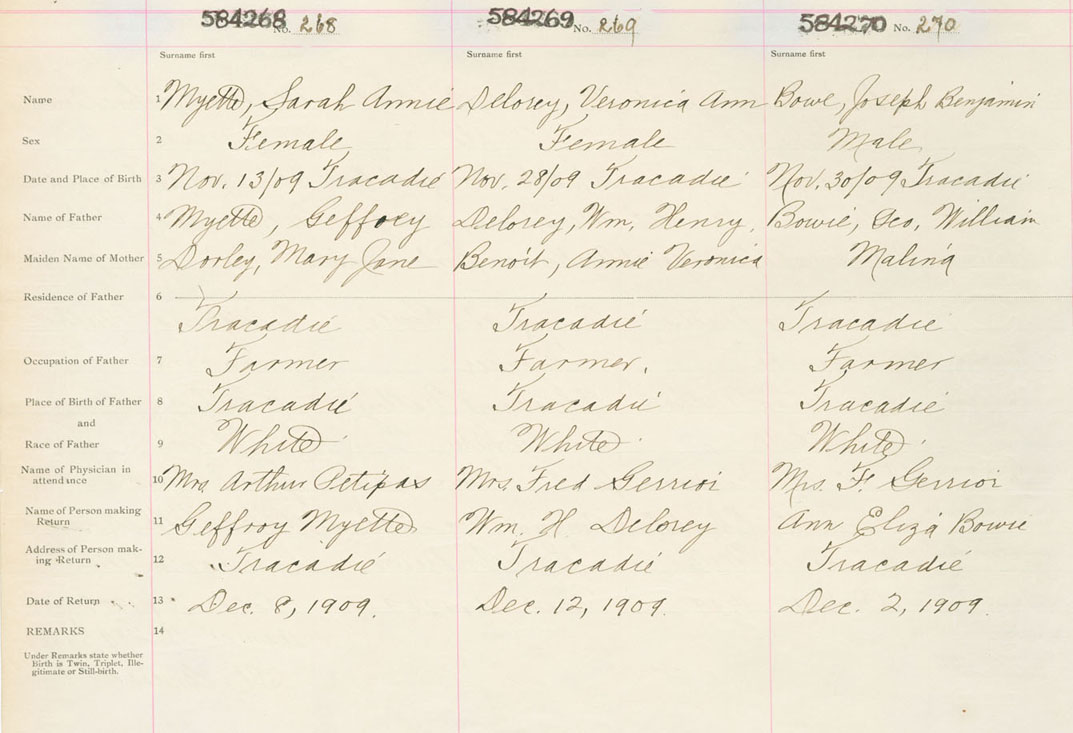 584268 No. 268 584269 No. 269 584270 No. 270
Surname first Surname first Surname first
Name 1 Myette, Sarah Annie Delorey, Veronica Ann Bowe, Joseph Benjamin
Sex 2 Female Female Male
Date and Place of Birth 3 Nov. 13/09 Tracadie Nov. 28/09 Tracadie Nov. 30/09 Tracadie
Name of Father 4 Myette, Geffroey Delorey, Wm. Henry. Bowie, Geo. William
Maiden Name of Mother 5 Dorley, Mary Jane Benoit, Annie Veronica Malina
Residence of Father 6
Tracadie Tracadie Tracadie
Occupation of Father 7 Farmer Farmer. Farmer
Place of Birth of Father 8 Tracadie Tracadie Tracadie
and
Race of Father 9 White White White
Name of Physician in
attendance 10 Mrs. Arthur Petipas Mrs. Fred Gerrior Mrs. F. Gerrior
Name of Person making
Return 11 Geffroy Myette Wm. H. Delorey Ann Eliza Bowie
Address of Person mak-
ing Return 12 Tracadie Tracadie Tracadie
Date of Return 13 Dec. 8, 1909. Dec. 12, 1909. Dec. 2, 1909.
REMARKS 14
Under Remarks state whether
Birth is Twin, Triplet, Ille-
gitimate or Still-birth.